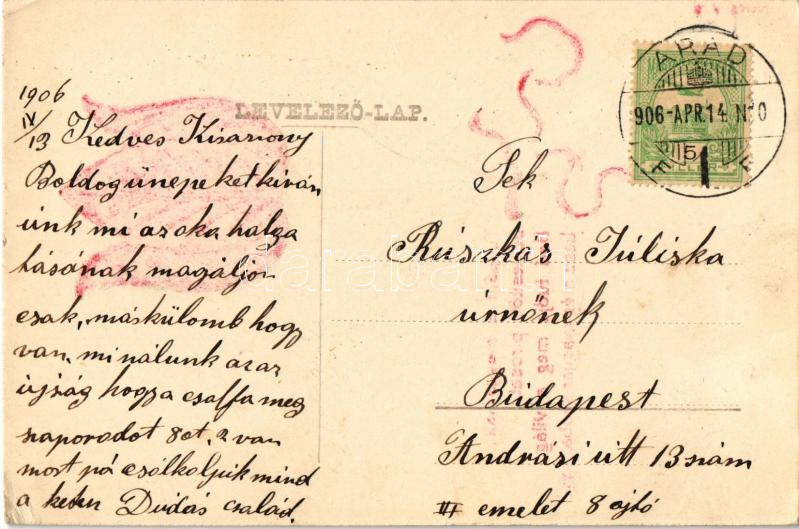 LEVELEZŐ-LAP.
1906
IV/13 Kedves Kisasszony
Boldog ünepeket kiván
ünk mi az oka halga
tásának magáljon
csak, máskülomb hogy
van, mi nálunk az az
újság hogya csaffa meg
szaporodot 8et, 2 van
most pá csólkoljuk mind
a keten Dudás család.
ARAD
906-APR.14 N 0
5
Tek
Rúszkás Júliska
úrnőnek
Budapest
Andrási útt 13 szám
III emelet 8 ajtó
darabanth